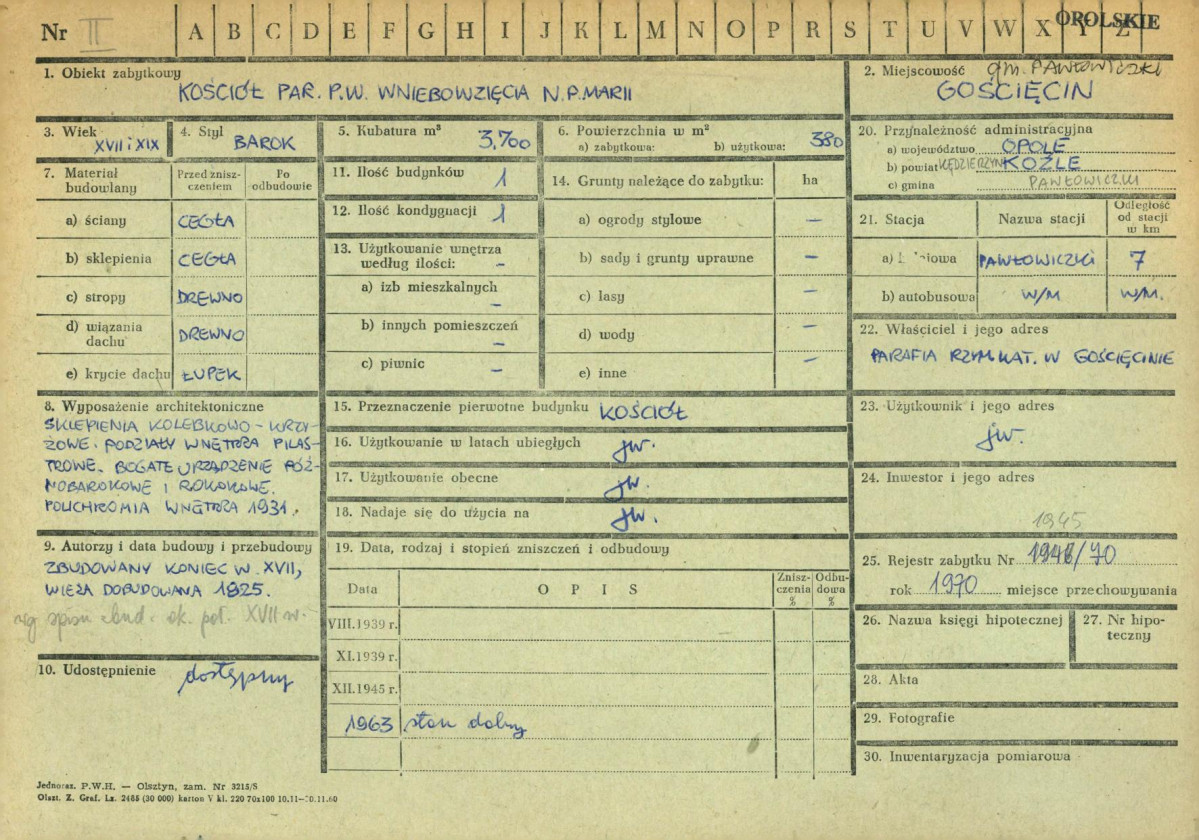 Nr II A B C D E F G H I J K L M N O P R S T U V W X Y Z OPOLSKIE
1. Obiekt zabytkowy
KOŚCIÓŁ PAR. P.W. WNIEBOWZIĘCIA N.P.MARII
2. Miejscowość gm. PAWŁOWICZKI
GOŚCIĘCIN
3. Wiek
XVII i XIX
4. Styl
BAROK
5. Kubatura m³
3,700
6. Powierzchnia w m²
a) zabytkowa: b) użytkowa: 380
20. Przynależność administracyjna
a) województwo OPOLE
b) powiat KĘDZIERZYN KOŹLE
c) gmina PAWŁOWICZKI
7. Materiał budowlany
Przed zniszczeniem
Po odbudowie
a) ściany CEGŁA
b) sklepienia CEGŁA
c) stropy DREWNO
d) wiązania dachu DREWNO
e) krycie dachu ŁUPEK
11. Ilość budynków 1
12. Ilość kondygnacji 1
13. Użytkowanie wnętrza
według ilości: –
a) izb mieszkalnych –
b) innych pomieszczeń –
c) piwnic –
14. Grunty należące do zabytku: ha
a) ogrody stylowe –
b) sady i grunty uprawne –
c) lasy –
d) wody –
e) inne –
21. Stacja Nazwa stacji Odległość od stacji w km
a) PAWŁOWICZKI 7
b) autobusowa W/M W/M.
22. Właściciel i jego adres
PARAFIA RZYM KAT. W GOŚCIĘCINIE
8. Wyposażenie architektoniczne
SKLEPIENIA KOLEBKOWO-KRZY-
ŻOWE. PODZIAŁY WNĘTRZA PILAS-
TROWE. BOGATE URZĄDZENIE PÓŹ-
NOBAROKOWE I ROKOKOWE.
POLICHROMIA WNĘTRZA 1931.
15. Przeznaczenie pierwotne budynku KOŚCIÓŁ
16. Użytkowanie w latach ubiegłych jw.
17. Użytkowanie obecne jw.
18. Nadaje się do użycia na jw.
23. Użytkownik i jego adres
jw.
24. Inwestor i jego adres
1945
9. Autorzy i data budowy i przebudowy
ZBUDOWANY KONIEC W. XVII,
WIEŻA DOBUDOWANA 1825.
wg spisu zbud. ok. poł. XVII w.
19. Data, rodzaj i stopień zniszczeń i odbudowy
Data OPIS Zniszczenia % Odbudowa %
VIII.1939 r.
XI.1939 r.
XII.1945 r.
1963 stan dobry
25. Rejestr zabytku Nr /70
rok 1970 miejsce przechowywania
26. Nazwa księgi hipotecznej
27. Nr hipoteczny
10. Udostępnienie dostępny
28. Akta
29. Fotografie
30. Inwentaryzacja pomiarowa
Jednoraz. P.W.H. — Olsztyn, zam. Nr 3215/S
Olszt. Z. Graf. Lz. 2485 (30 000) karton V kl. 220 70x100